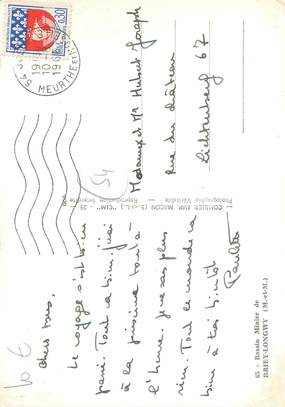 65 - Bassin Minier de
BRIEY-LONGWY (M.-et-M.)
Chers tous,
Le voyage s'est bien
passé. Tout a bien. J'irai
à la piscine tout à
l'heure. Je ne sais plus
rien. Tout le monde va
bien à très bientôt
Paulette
COMBIER IMP. MACON (S.-et-L.) "CIM"
Photographie Véritable - Reproduction Interdite
Madame et Mr Hubert Joseph
rue du château
Lichtenberg 67
0,30
54
MEURTHE ET
54
10 €